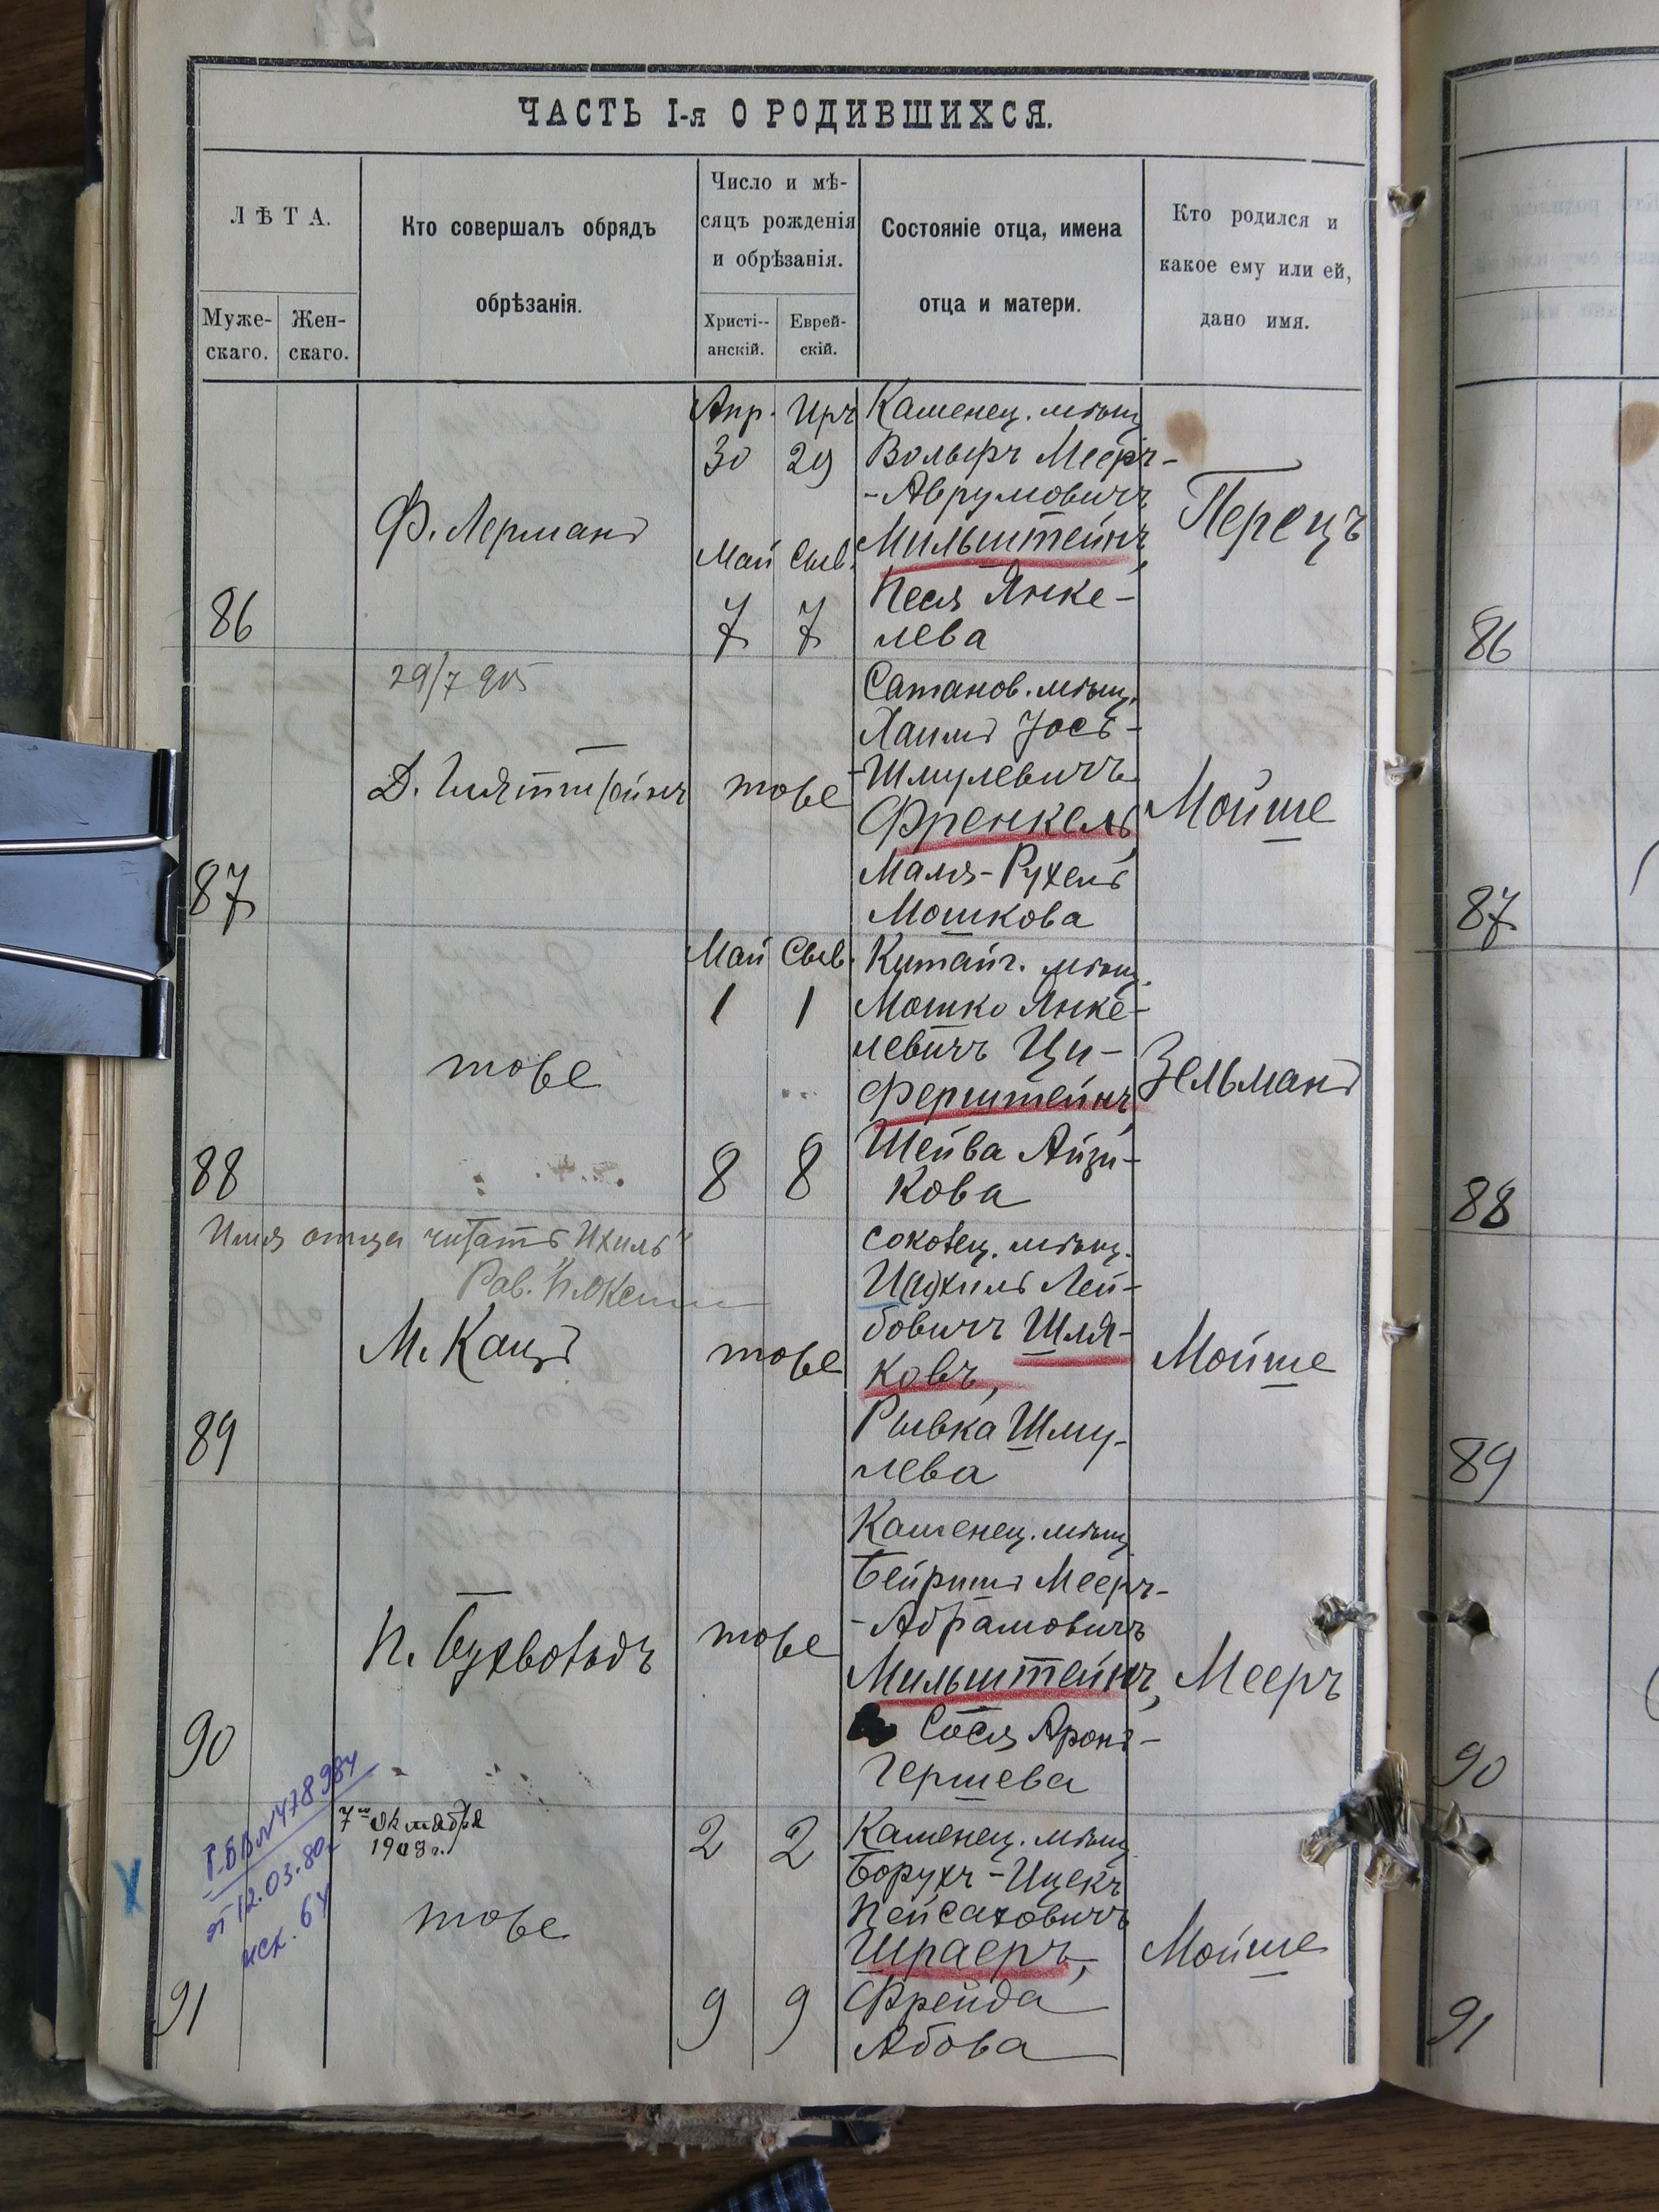 ЧАСТЬ I-я О РОДИВШИХСЯ.
ЛѢТА.
Муже-
скаго.
Жен-
скаго.
Кто совершалъ обрядъ
обрѣзанія.
Число и мѣ-
сяцъ рожденія
и обрѣзанія.
Христі--
анскій.
Еврей-
скій.
Состояніе отца, имена
отца и матери.
Кто родился и
какое ему или ей,
дано имя.
86
Ф. Лерманъ
Апр. Иръ
30 29
Май Сыв.
7 7
Каменец. мѣщ.
Вольфъ Мееръ-
-Аврумовичъ
Мильштейнъ,
Песя Янке-
лева
Перецъ
86
29/7 905
87
Д.
тоже
Сатанов. мѣщ.
Хаимъ Іосъ-
-Шмулевичъ
Френкель,
Маля-Рухель
Мошкова
Мойше
87
88
тоже
Май Сыв.
1 1
8 8
Китайг. мѣщ.
Мошко Янке-
левичъ Ци-
ферштейнъ,
Шейва Айзи-
кова
Зельманъ
88
Имя отца читать "Ихиль"
Рав.
89
М. Кацъ
тоже
Соколец. мѣщ.
И(ц)хиль Лей-
бовичъ Шля-
ковъ,
Рывка Шму-
лева
Мойше
89
90
П. Бухвольдъ
тоже
Каменец. мѣщ.
Бейришъ Мееръ-
-Абрамовичъ
Мильштейнъ,
Сося Аронъ-
Гершева
Мееръ
90
7го октября
1908 г.
от 12.03.80г
иск. 64
91
тоже
2 2
9 9
Каменец. мѣщ.
Борухъ-Ицекъ
Пейсаховичъ
Шраеръ,
Фрейда
Абова
Мойше
91